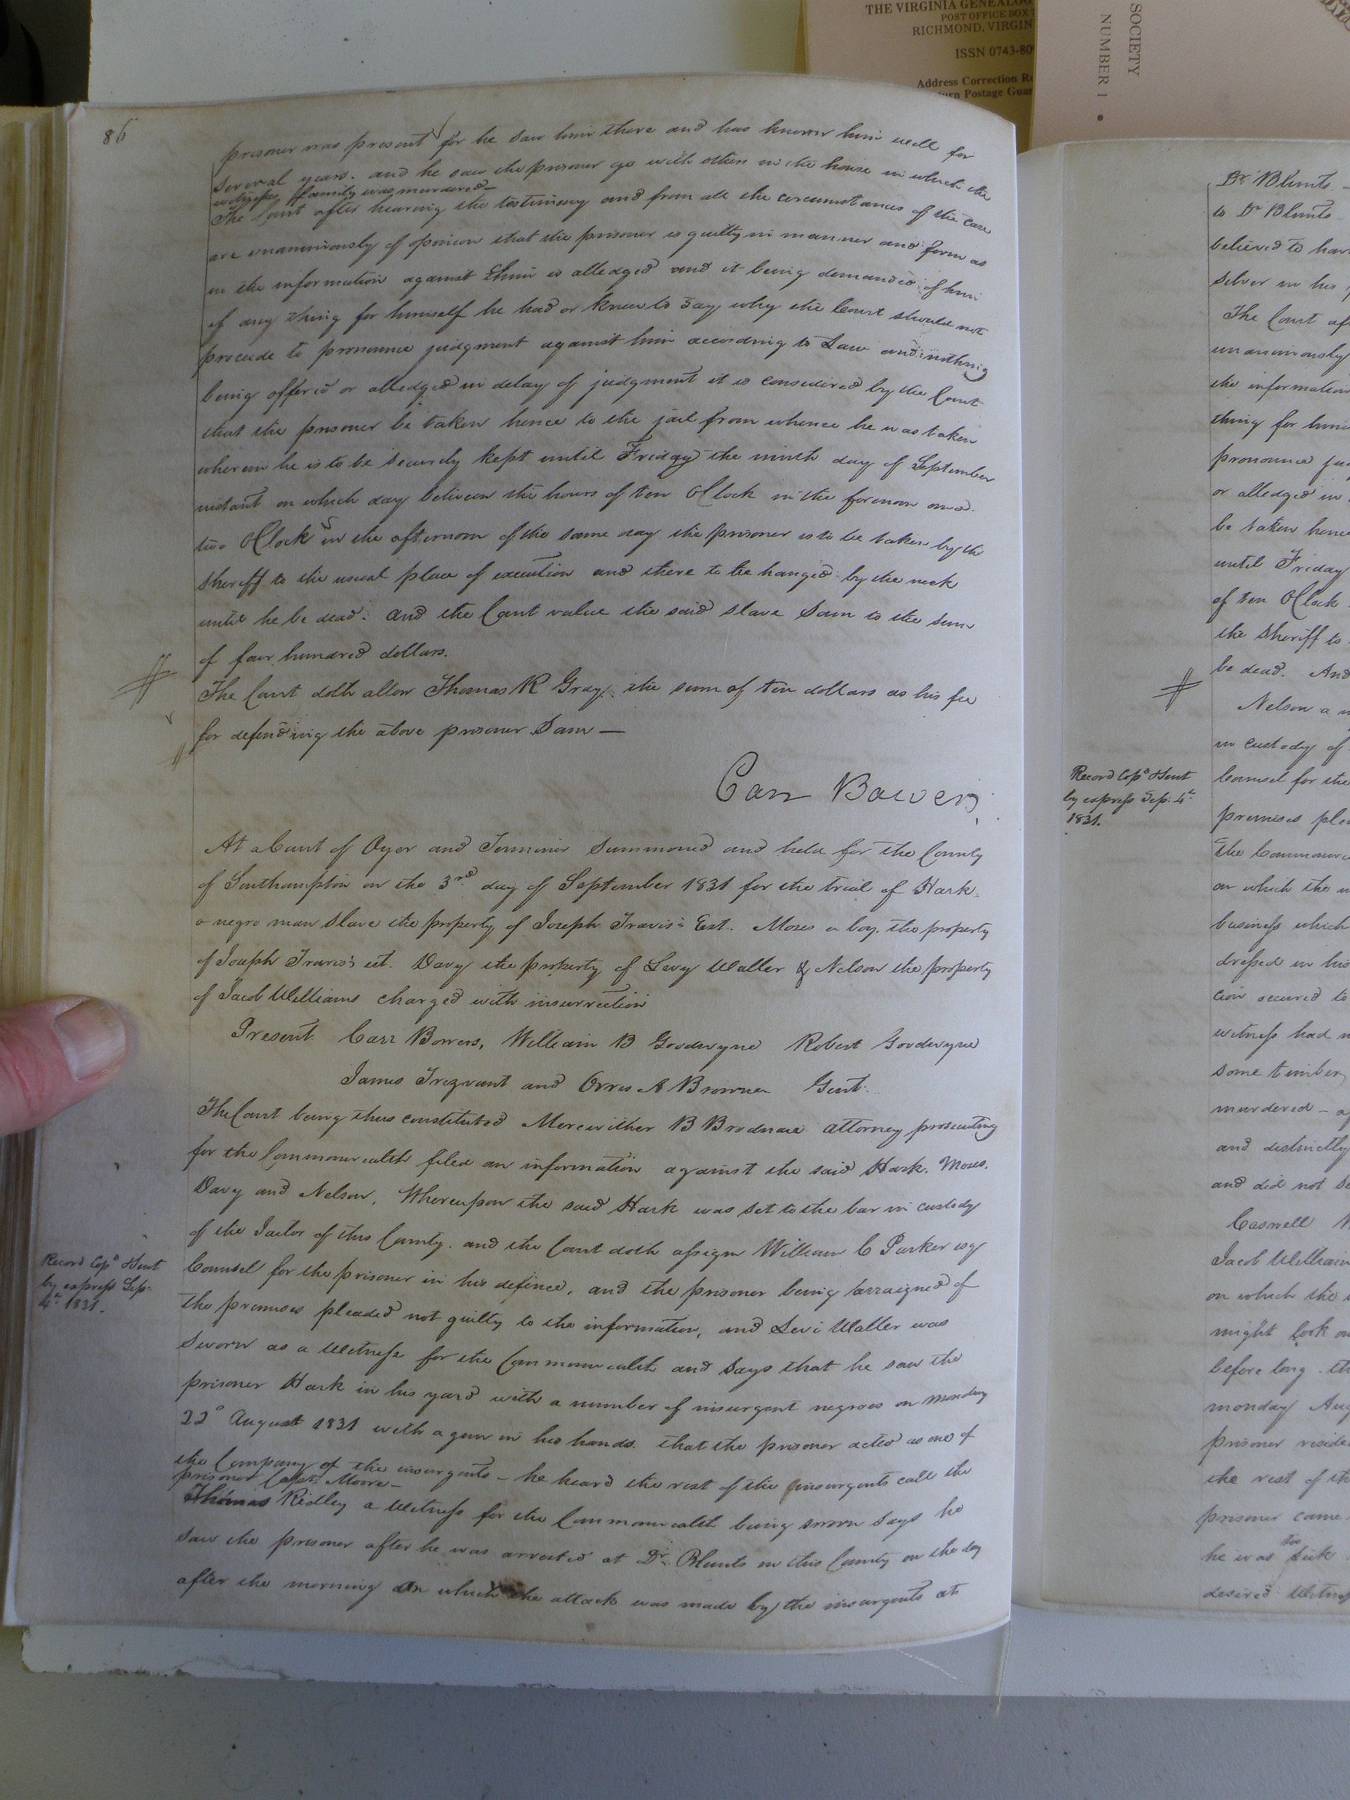 THE VIRGINIA GENEALOG
POST OFFICE BOX
RICHMOND, VIRGIN
ISSN 0743-80
Address Correction Re
turn Postage Guar
SOCIETY
NUMBER 1
86
prisoner was present for he saw him there and has known him well for
several years. and he saw the prisoner go with others in the house in which the
witness family was murdered —
The Court after hearing the testimony and from all the circumstances of the case
are unanimously of opinion that the prisoner is guilty in manner and form as
in the information against him is alledged and it being demanded of him
if any thing for himself he had or knew to say why the Court should not
proceede to pronounce judgment against him according to Law and nothing
being offered or alledged in delay of judgment it is considered by the Court
that the prisoner be taken hence to the jail from whence he was taken
wherein he is to be securely kept until Friday the ninth day of September
instant on which day between the hours of ten OClock in the forenoon and
two OClock in the afternoon of the same day the prisoner is to be taken by the
Sheriff to the usual place of execution and there to be hanged by the neck
until he be dead. And the Court value the said slave Sam to the sum
of four hundred dollars.
The Court doth allow Thomas R Gray the sum of ten dollars as his fee
for defending the above prisoner Sam —
Carr Bowers
At a Court of Oyer and Terminer Summoned and held for the County
of Southampton on the 3rd day of September 1831 for the trial of Hark
a negro man slave the property of Joseph Travis's Est. Moses a boy the property
of Joseph Travis's est. Davy the property of Levy Waller & Nelson the property
of Jacob Williams charged with insurrection
Present Carr Bowers, William B Goodwyne Robert Goodwyne
James Trezvant and Orris A Browne Gent.
The Court being thus constituted Meriwether B Brodnax attorney prosecuting
for the Commonwealth filed an information against the said Hark. Moses.
Davy and Nelson. Whereupon the said Hark was set to the bar in custody
of the Jailor of this County. and the Court doth assign William C Parker esq
Counsel for the prisoner in his defence, and the prisoner being arraigned of
the premises pleaded not guilty to the information, and Levi Waller was
Sworn as a Witness for the Commonwealth and says that he saw the
prisoner Hark in his yard with a number of insurgent negroes on monday
22d August 1831 with a gun in his hands. that the prisoner acted as one of
the Company of the insurgents — he heard the rest of the insurgents call the
prisoner Capt. Moore —
Thomas Ridley a Witness for the Commonwealth being sworn says he
saw the prisoner after he was arrested at Dr. Blunts in this County on the day
after the morning on which the attack was made by the insurgents at
Record Cop.d & Sent
by express Sep.
4th 1831.
Dr Blunts
to Dr Blunts
believed to hav
silver in his
The Court af
unanimously
the information
thing for him
pronounce ju
or alledged in
be taken hence
until Friday
of ten OClock
the Sheriff to
be dead. And
Nelson a
in custody of
Counsel for the
premises ple
The Commonw
on which the
business which
dressed in his
cion occured to
witness had
some timber
murdered — a
and distinctly
and did not
Caswell
Jacob William
on which the
might look
before long. th
monday Aug
prisoner reside
the rest of th
prisoner came
he was too sick
desired Witness
Record Cop.d & Sent
by express Sep. 4th
1831.